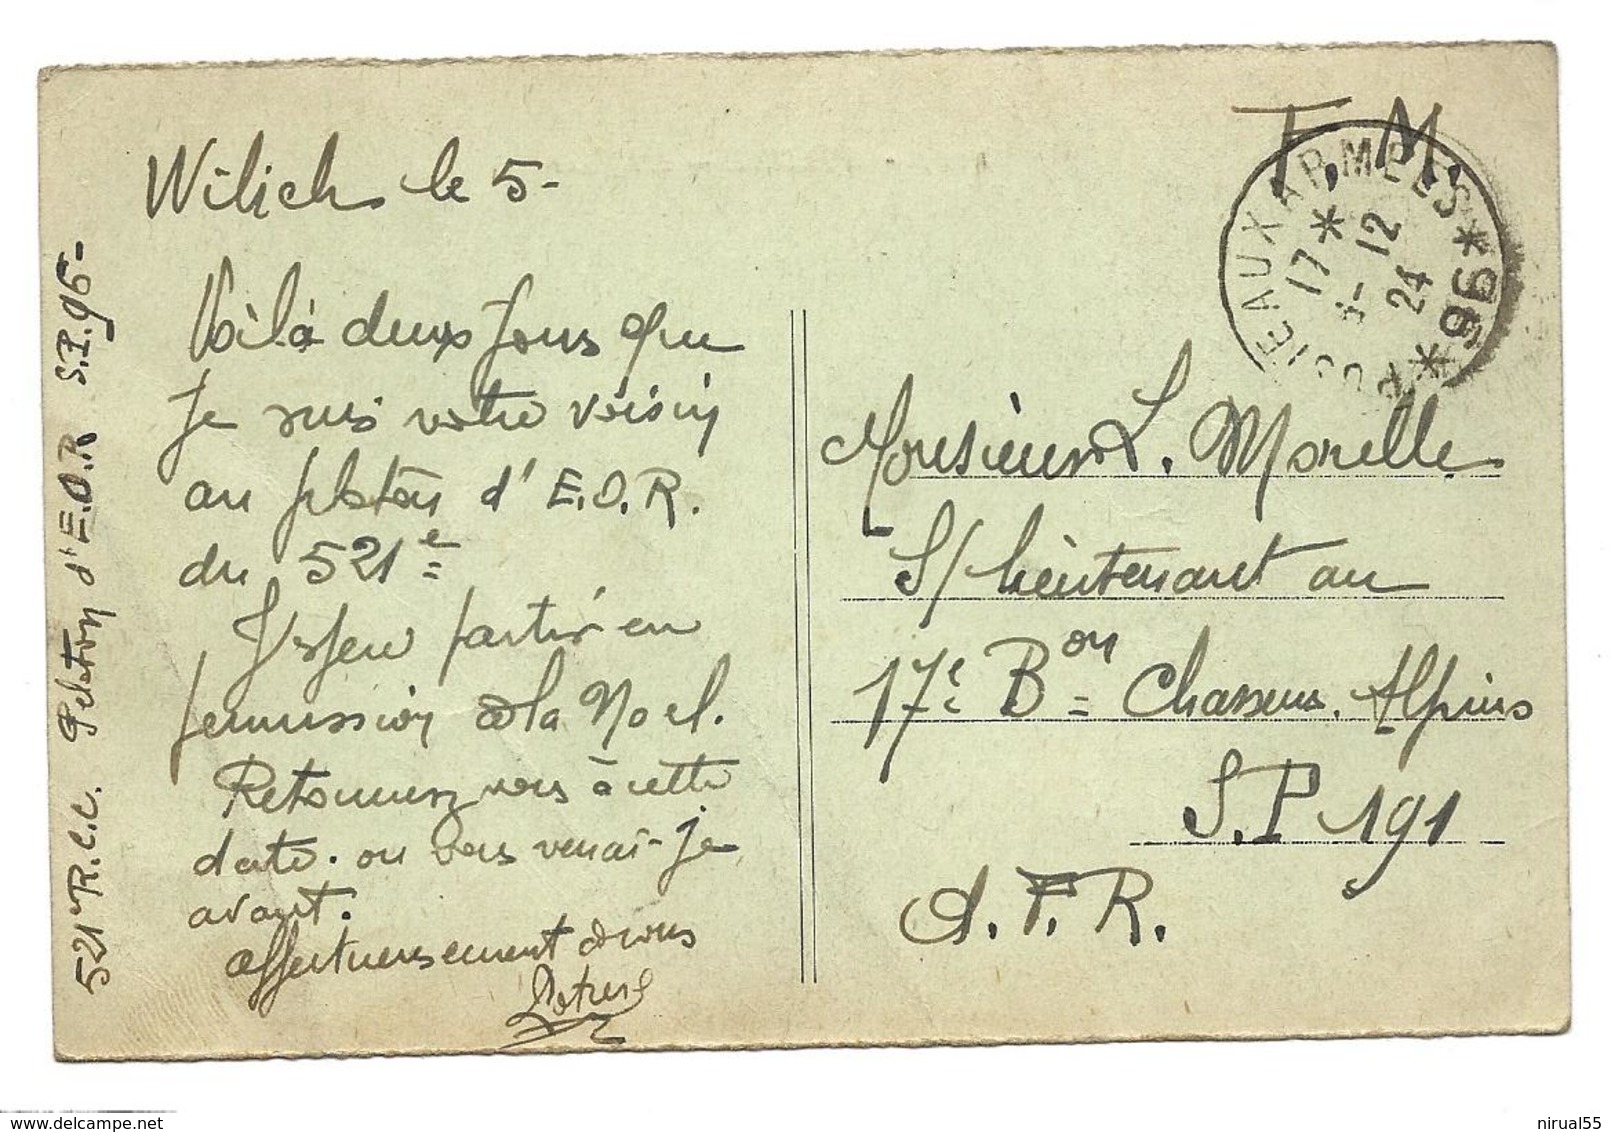 Wilich le 5-
Voilà deux jours que
je suis votre voisin
au peloton d'E.O.R.
du 521e
J'espère partir en
permission à la Noel.
Retournez vous à cette
date. ou vous verrai-je
avant.
affectueusement à vous
521e R.C.C. Peloton d'E.O.R S.P.96-
F.M.
POSTE AUX ARMEES
* 96 *
17 *
5-12
24
Monsieur L. Morelle
S/Lieutenant au
17e Bon Chasseurs Alpins
S.P 191
A.F.R.
nirual55